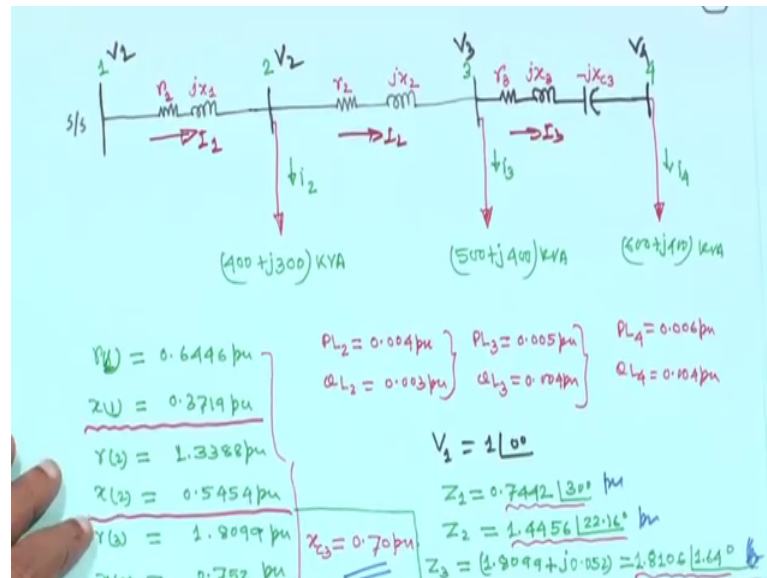 1 V1 2 V2 V3 3 V4 4
r1 jx1 r2 jx2 r3 jx3 -jxc3
S/S
I1 I2 I3
i2 i3 i4
(400+j300) KVA (500+j400) KVA (600+j400) KVA
r(1) = 0.6446 pu
x(1) = 0.3719 pu
r(2) = 1.3388 pu
x(2) = 0.5454 pu
r(3) = 1.8099 pu
0.752 pu
xc3 = 0.70 pu
PL2 = 0.004 pu PL3 = 0.005 pu PL4 = 0.006 pu
QL2 = 0.003 pu QL3 = 0.004 pu QL4 = 0.004 pu
V1 = 1∠0°
Z1 = 0.7442∠30° pu
Z2 = 1.4456∠22.16° pu
Z3 = (1.8099+j0.052) = 1.8106∠1.64°